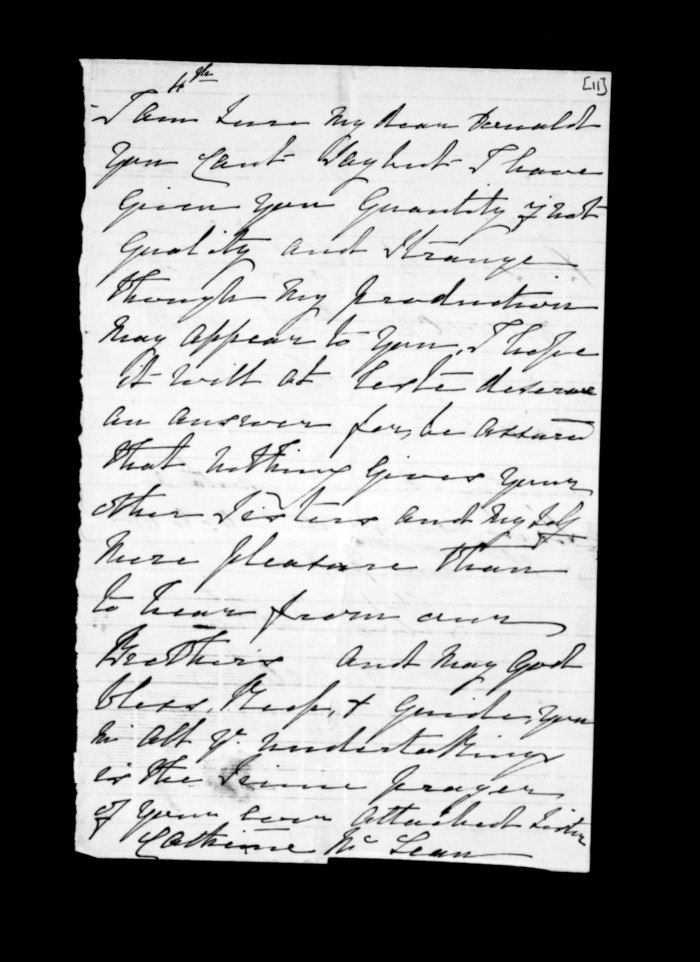 4th
[11]
I am sure my dear Donald
you cant say but I have
given you quantity if not
quality and strange
though my production
may appear to you, I hope
it will at leste deserve
an answer for, be assured
that nothing gives your
other sisters and myself
more pleasure than
to hear from our
Brothers and may God
bless, Keep, & guide, you
in all yr undertakings
is the prayer
of your ever attached sister
Catherine McLean